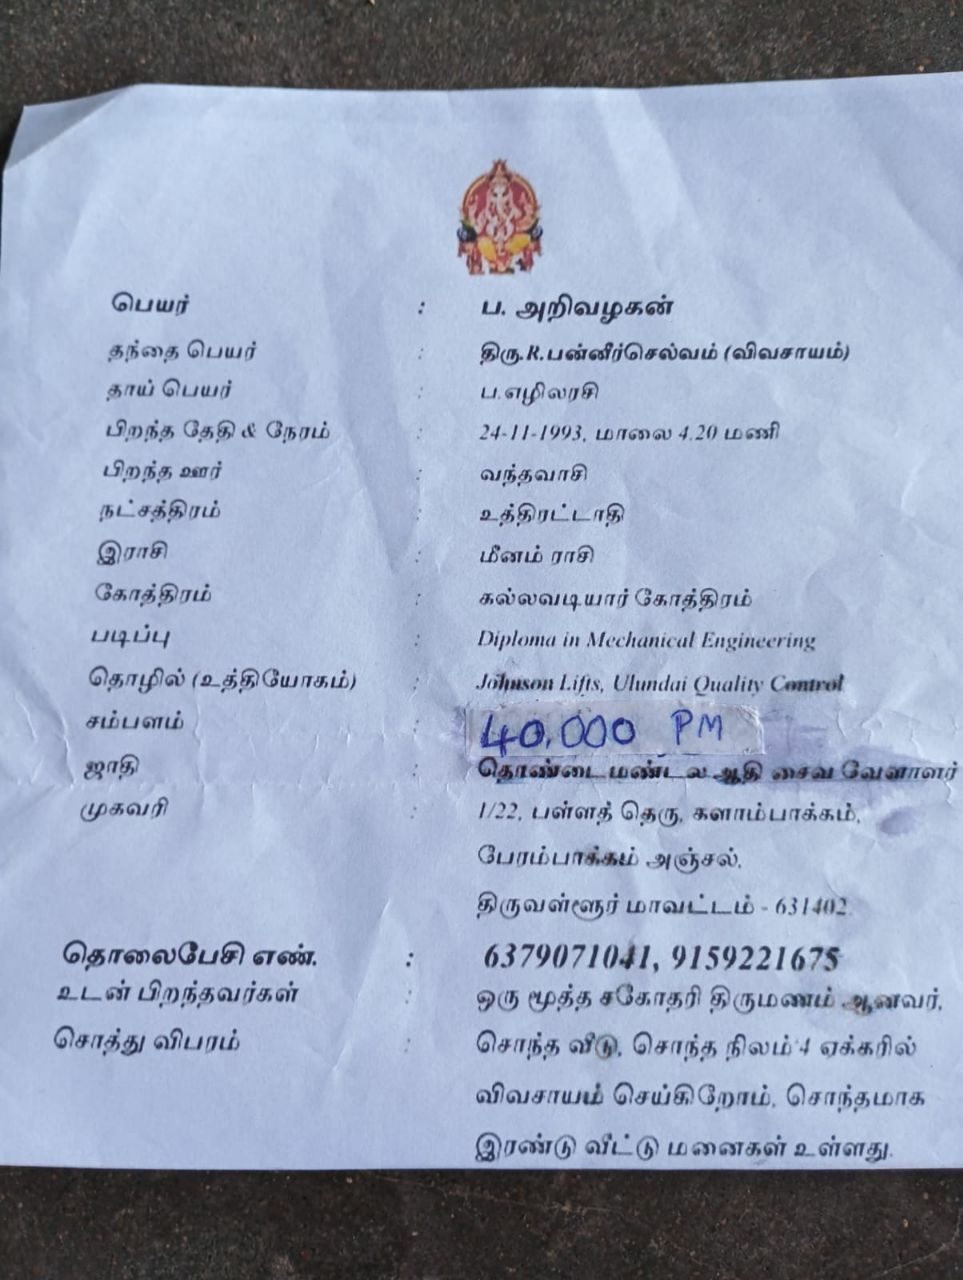 பெயர் : ப. அறிவழகன்
தந்தை பெயர் : திரு.R.பன்னீர்செல்வம் (விவசாயம்)
தாய் பெயர் : ப.எழிலரசி
பிறந்த தேதி & நேரம் : 24-11-1993, மாலை 4.20 மணி
பிறந்த ஊர் : வந்தவாசி
நட்சத்திரம் : உத்திரட்டாதி
இராசி : மீனம் ராசி
கோத்திரம் : கல்லவடியார் கோத்திரம்
படிப்பு : Diploma in Mechanical Engineering
தொழில் (உத்தியோகம்) : Johnson Lifts, Ulundai Quality Control
சம்பளம் : 40,000 PM
ஜாதி : தொண்டைமண்டல ஆதி சைவ வேளாளர்
முகவரி : 1/22, பள்ளத் தெரு, களாம்பாக்கம்,
பேரம்பாக்கம் அஞ்சல்,
திருவள்ளூர் மாவட்டம் - 631402.
தொலைபேசி எண். : 6379071041, 9159221675
உடன் பிறந்தவர்கள் : ஒரு மூத்த சகோதரி திருமணம் ஆனவர்,
சொத்து விபரம் : சொந்த வீடு, சொந்த நிலம் 4 ஏக்கரில்
விவசாயம் செய்கிறோம், சொந்தமாக
இரண்டு வீட்டு மனைகள் உள்ளது.